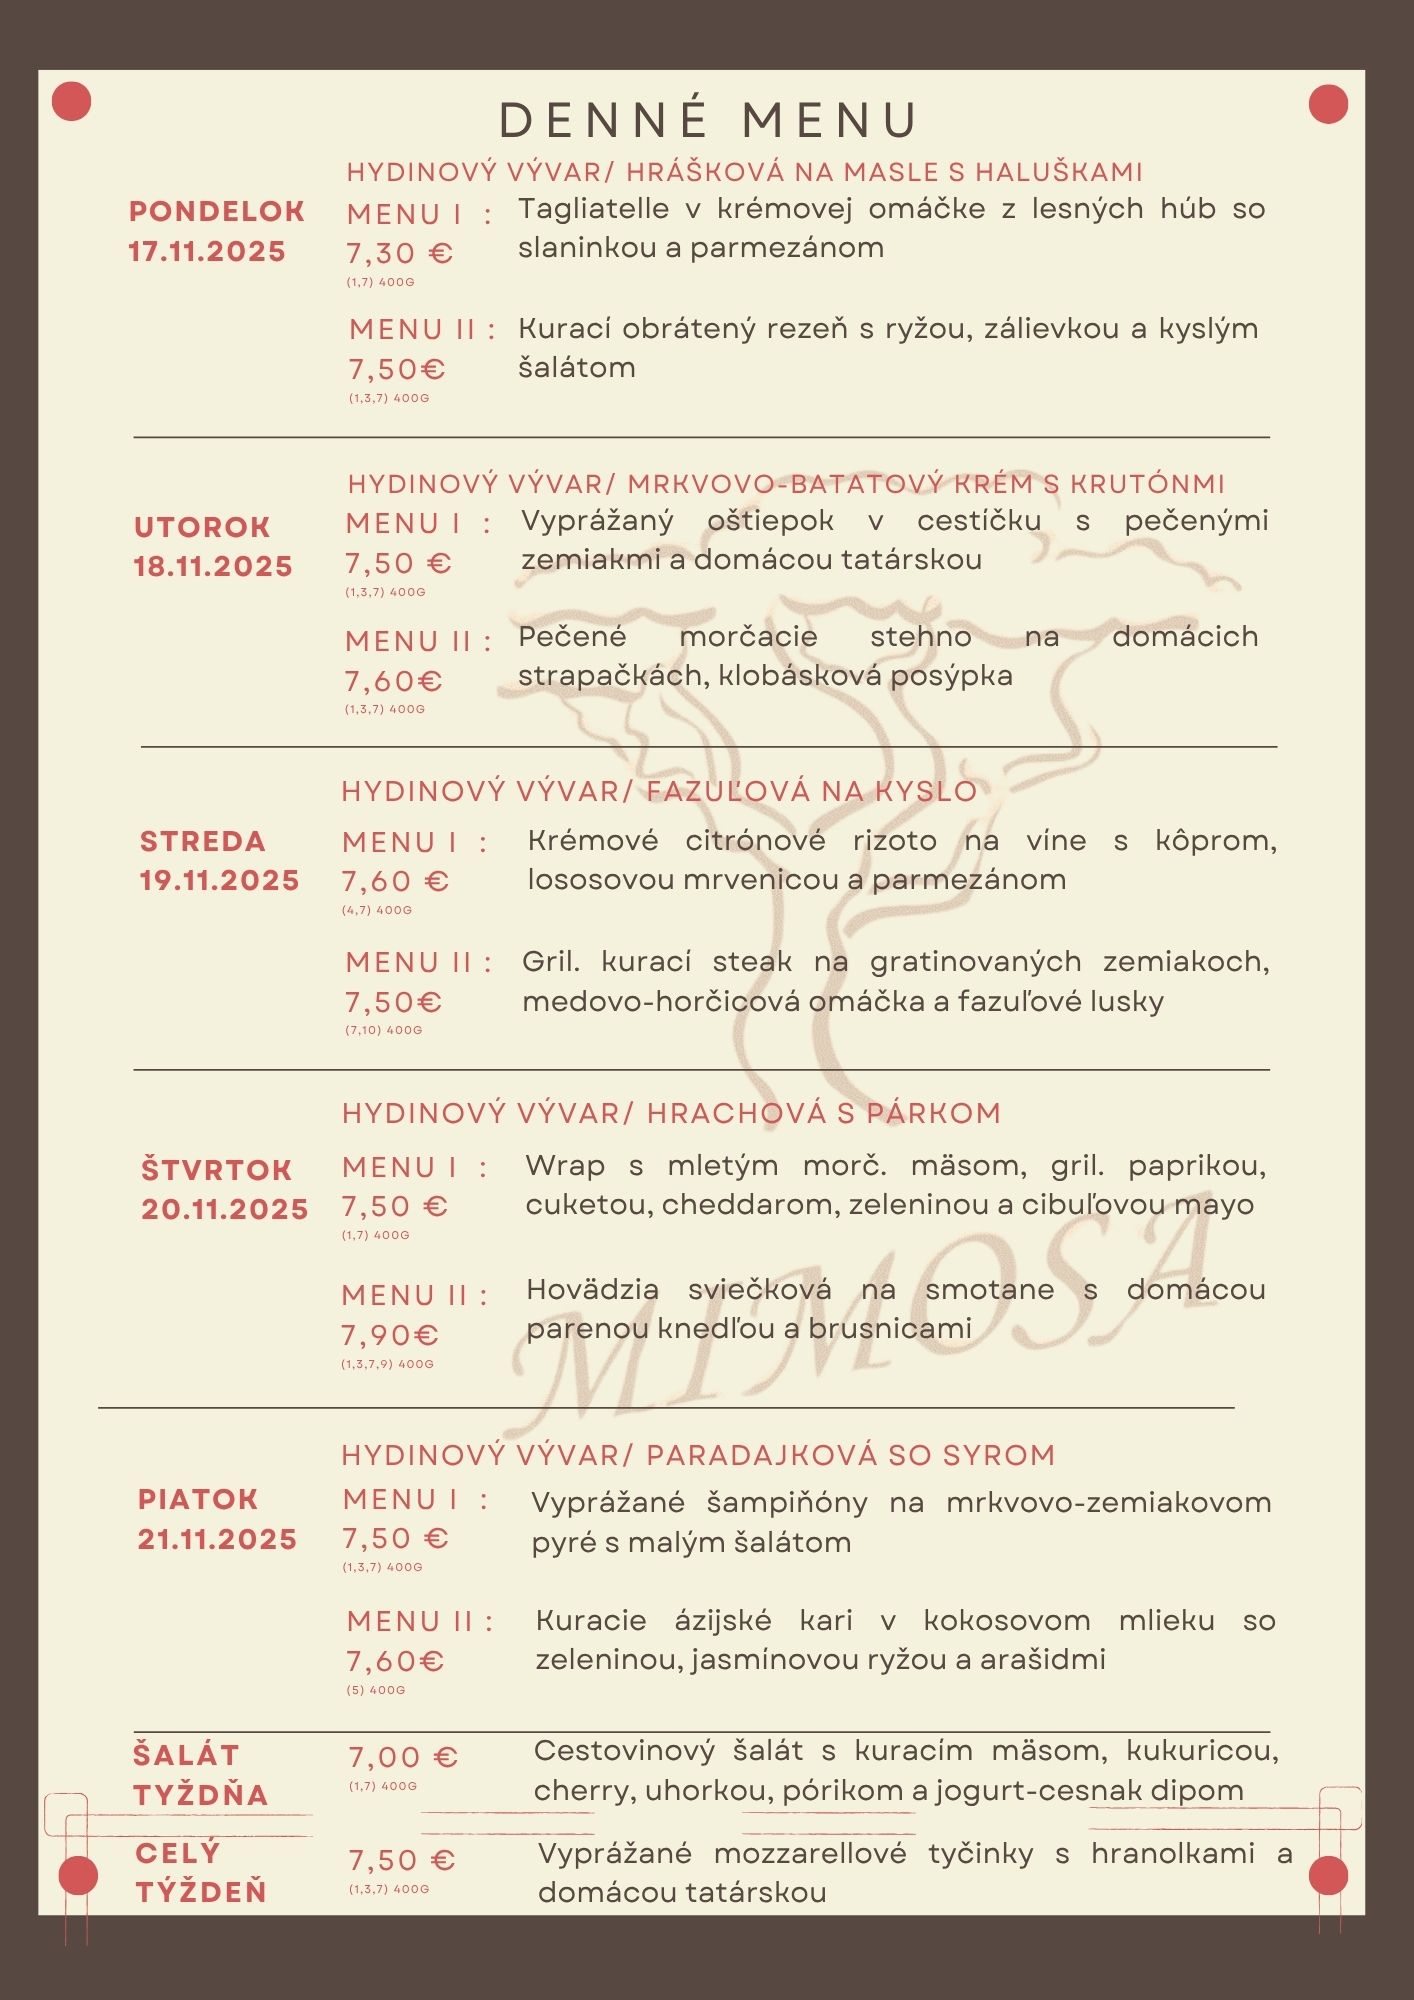 DENNÉ MENU
HYDINOVÝ VÝVAR/ HRÁŠKOVÁ NA MASLE S HALUŠKAMI
PONDELOK
17.11.2025
MENU I :
7,30 €
(1,7) 400G
Tagliatelle v krémovej omáčke z lesných húb so
slaninkou a parmezánom
MENU II :
7,50€
(1,3,7) 400G
Kurací obrátený rezeň s ryžou, zálievkou a kyslým
šalátom
HYDINOVÝ VÝVAR/ MRKVOVO-BATATOVÝ KRÉM S KRUTÓNMI
UTOROK
18.11.2025
MENU I :
7,50 €
(1,3,7) 400G
Vyprážaný oštiepok v cestíčku s pečenými
zemiakmi a domácou tatárskou
MENU II :
7,60€
(1,3,7) 400G
Pečené morčacie stehno na domácich
strapačkách, klobásková posýpka
HYDINOVÝ VÝVAR/ FAZUĽOVÁ NA KYSLO
STREDA
19.11.2025
MENU I :
7,60 €
(4,7) 400G
Krémové citrónové rizoto na víne s kôprom,
lososovou mrvenicou a parmezánom
MENU II :
7,50€
(7,10) 400G
Gril. kurací steak na gratinovaných zemiakoch,
medovo-horčicová omáčka a fazuľové lusky
HYDINOVÝ VÝVAR/ HRACHOVÁ S PÁRKOM
ŠTVRTOK
20.11.2025
MENU I :
7,50 €
(1,7) 400G
Wrap s mletým morč. mäsom, gril. paprikou,
cuketou, cheddarom, zeleninou a cibuľovou mayo
MENU II :
7,90€
(1,3,7,9) 400G
Hovädzia sviečková na smotane s domácou
parenou knedľou a brusnicami
MIMOSA
HYDINOVÝ VÝVAR/ PARADAJKOVÁ SO SYROM
PIATOK
21.11.2025
MENU I :
7,50 €
(1,3,7) 400G
Vyprážané šampiňóny na mrkvovo-zemiakovom
pyré s malým šalátom
MENU II :
7,60€
(5) 400G
Kuracie ázijské kari v kokosovom mlieku so
zeleninou, jasmínovou ryžou a arašidmi
ŠALÁT
TYŽDŇA
7,00 €
(1,7) 400G
Cestovinový šalát s kuracím mäsom, kukuricou,
cherry, uhorkou, pórikom a jogurt-cesnak dipom
CELÝ
TÝŽDEŇ
7,50 €
(1,3,7) 400G
Vyprážané mozzarellové tyčinky s hranolkami a
domácou tatárskou